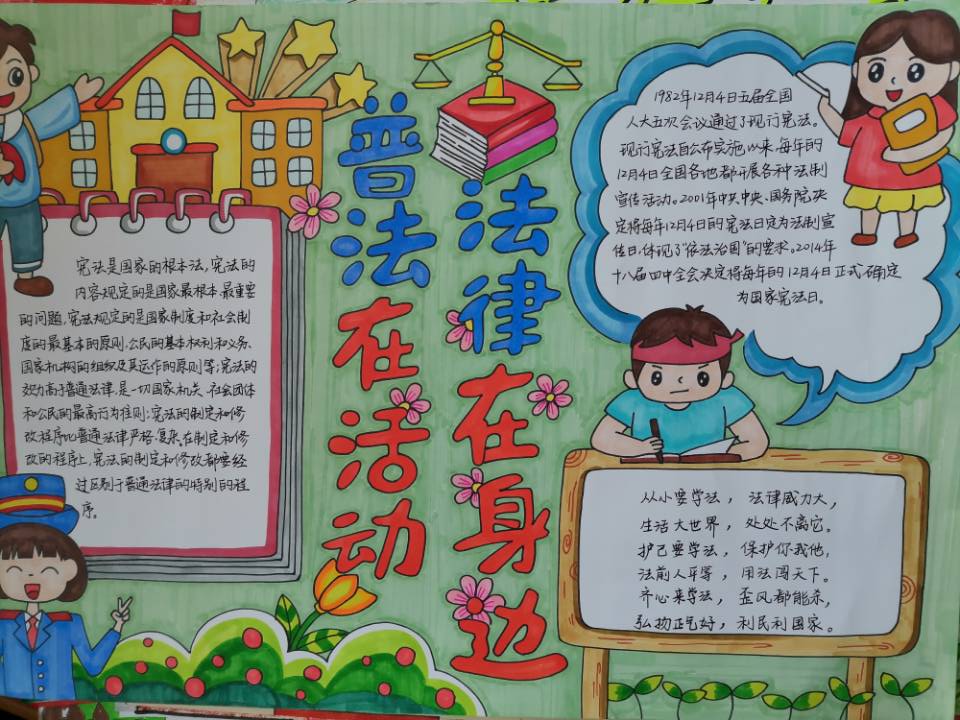 宪法是国家的根本法,宪法的
内容规定的是国家最根本、最重要
的问题,宪法规定的是国家制度和社会制
度的最基本的原则,公民的基本权利和义务、
国家机构的组织及其运作的原则等;宪法的
效力高于普通法律,是一切国家机关、社会团体
和公民的最高行为准则;宪法的制定和修
改程序比普通法律严格、复杂,在制定和修
改的程序上,宪法的制定和修改都要经
过区别于普通法律的特别的程
序。
普法在活动
法律在身边
1982年12月4日五届全国
人大五次会议通过了现行宪法。
现行宪法自公布实施以来,每年的
12月4日全国各地都开展各种法制
宣传活动。2001年中共中央、国务院决
定将每年12月4日的宪法日定为法制宣
传日,体现了“依法治国”的要求。2014年
十八届四中全会决定将每年的12月4日正式确定
为国家宪法日。
从小要学法,法律威力大,
生活大世界,处处不离它。
护己要学法,保护你我他,
法前人平等,用法闯天下。
齐心来学法,歪风都能杀,
弘扬正气好,利民利国家。